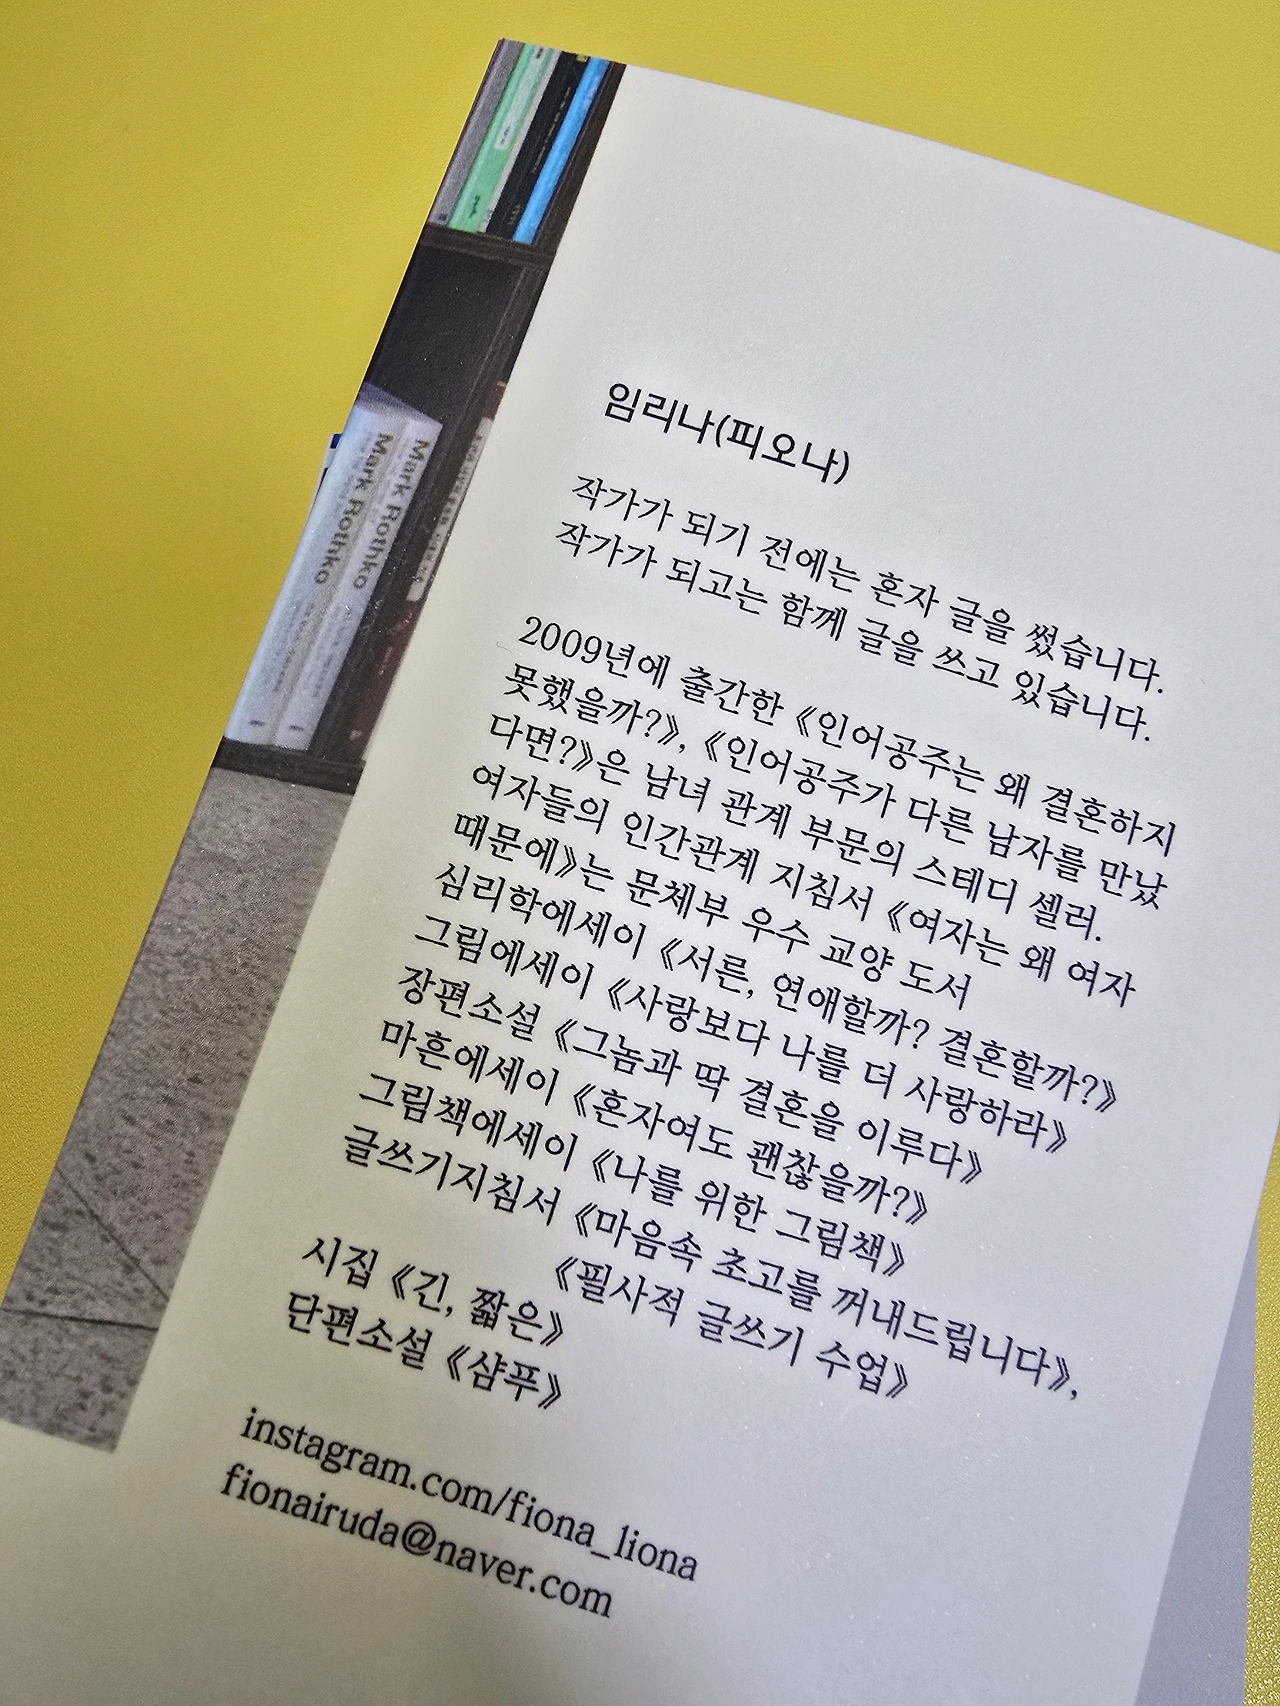 Mark Rothko
Mark Rothko
임리나(피오나)
작가가 되기 전에는 혼자 글을 썼습니다.
작가가 되고는 함께 글을 쓰고 있습니다.
2009년에 출간한 《인어공주는 왜 결혼하지
못했을까?》, 《인어공주가 다른 남자를 만났
다면?》은 남녀 관계 부문의 스테디 셀러.
여자들의 인간관계 지침서 《여자는 왜 여자
때문에》는 문체부 우수 교양 도서
심리학에세이 《서른, 연애할까? 결혼할까?》
그림에세이 《사랑보다 나를 더 사랑하라》
장편소설 《그놈과 딱 결혼을 이루다》
마흔에세이 《혼자여도 괜찮을까?》
그림책에세이 《나를 위한 그림책》
글쓰기지침서 《마음속 초고를 꺼내드립니다》,
《필사적 글쓰기 수업》
시집 《긴, 짧은》
단편소설 《샴푸》
instagram.com/fiona_liona
fionairuda@naver.com